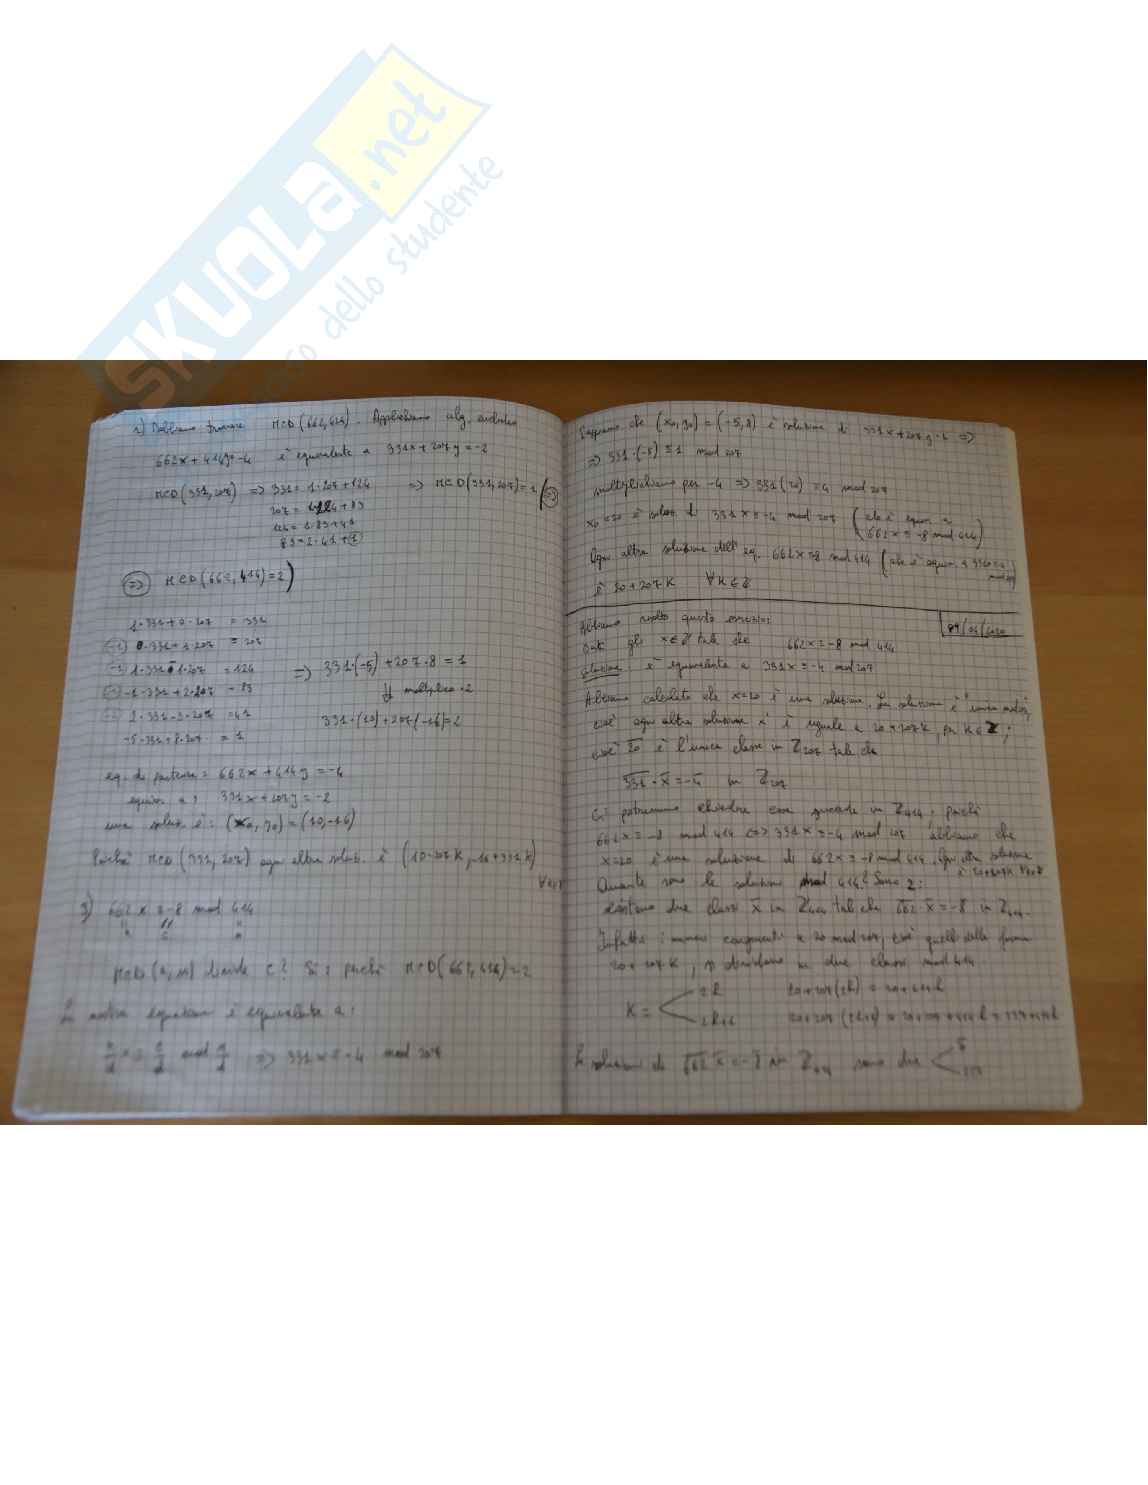 SKUOLA.net
dello studente
2) Dobbiamo trovare MCD(662,414). Applichiamo alg. euclideo
662x + 414y = -4 è equivalente a 331x + 207y = -2
MCD(331,207) => 331 = 1·207+124 => MCD(331,207)=1 (=>)
207 = 124+83
124 = 1·83+41
83 = 2·41+1
=> MCD(662,414)=2)
1·331+0·207 = 331
(-1) 0·331+1·207 = 207
1·331 1·207 = 124
-1·331+2·207 = 83
2·331-3·207 = 41
-5·331+8·207 = 1
=> 331·(-5)+207·8 = 1
⇓ moltiplico ·2
331·(10)+207(-16)=2
eq. di partenza: 662x+414y=-4
equiv a: 331x+207y=-2
una soluz. è: (x0, y0) = (10,-16)
Poiché MCD(331,207) ogni altra soluz. è (10-207k, -16+331k)
3) 662x ≡ -8 mod 414
MCD(a,m) divide c? Sì, poiché MCD(662,414)=2
La nostra equazione è equivalente a:
=> 331x ≡ -4 mod 207
Sappiamo che (x0,y0) = (-5,8) è soluzione di 331x+207y=1 =>
=> 331·(-5) ≡ 1 mod 207
moltiplichiamo per -4 => 331(20) ≡ 4 mod 207
x0=20 è soluz di 331x ≡ -4 mod 207 (che è equiv a
662x ≡ -8 mod 414)
Ogni altra soluzione dell'eq. 662x≡8 mod 414 (che è equiv. a
è 20+207k ∀k∈Z
09/03/2020
Abbiamo svolto questo esercizio:
gli x∈Z tale che 662x ≡ -8 mod 414
Soluzione: è equivalente a 331x ≡ -4 mod 207
Abbiamo calcolato che x=20 è una soluzione. La soluzione è unica mod
cioè ogni altra soluzione x' è uguale a 20+207k, per k∈Z;
cioè 20 è l'unica classe in Z207 tale che
331·x = -4 in Z207
Ci potremmo chiedere cosa succede in Z414, poiché
662x ≡ -8 mod 414 <=> 331x ≡ -4 mod 207 abbiamo che
x=20 è una soluzione di 662x ≡ -8 mod 414. Ogni altra soluzione
è 20+207k ∀k∈Z
Quante sono le soluzioni mod 414? Sono 2:
esistono due classi x in Z414 tali che 662·x = -8 in Z414.
Infatti i numeri congruenti a 20 mod 207, cioè quelli della forma
20+207k, si dividono in due classi mod 414
K = 2h 20+207(2h) = 20+414h
2h+1 20+207(2h+1) = 20+207+414h = 227+414h
Le soluzioni di 662 x = -8 in Z414 sono due